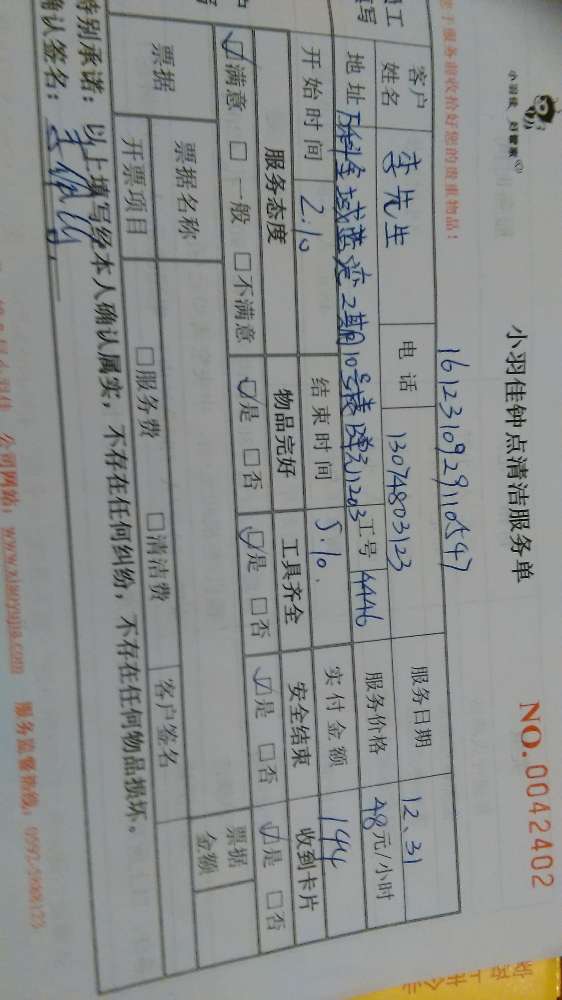 小羽佳 好管家
小羽佳钟点清洁服务单
NO. 0042402
于服务前收拾好您的贵重物品!
161231092910547
客户姓名 李先生 电话 13074803123 服务日期 12、31
地址 万科金域蓝湾2期10号楼 1203 工号 4446 服务价格 48元/小时
开始时间 2.10 结束时间 5.10. 实付金额 144
服务态度 物品完好 工具齐全 安全结束 收到卡片
☑满意 □一般 □不满意 ☑是 □否 ☑是 □否 ☑是 □否 ☑是 □否
票据 票据名称 票据金额
开票项目 □服务费 □清洁费 客户签名
特别承诺:以上填写经本人确认属实,不存在任何纠纷,不存在任何物品损坏。
确认签名:
公司网站:www.xiaoyujia.com 服务监督热线:0592-5088123